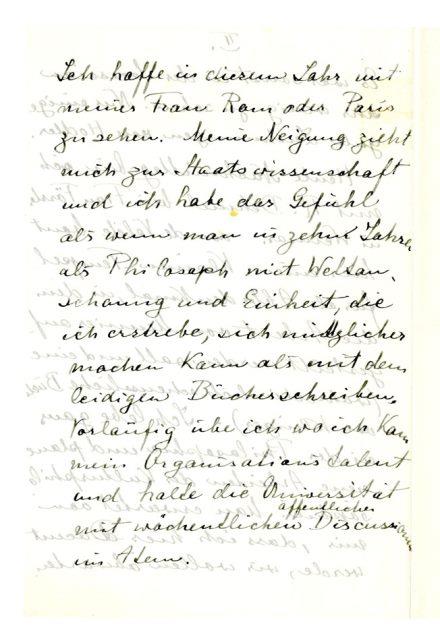 II.
Ich hoffe in diesem Jahr mit
meiner Frau Rom oder Paris
zu sehen. Meine Neigung zieht
mich zur Staatswissenschaft
und ich habe das Gefühl
als wenn man in zehn Jahren
als Philosoph mit Weltan-
schauung und Einheit, die
ich erstrebe, sich nützlicher
machen kann als mit dem
leidigen Bücherschreiben.
Vorläufig übe ich wo ich kann
mein Organisationstalent
und halte die Universität
mit wöchendlichen öffentlichen Discussionen
in Atem.